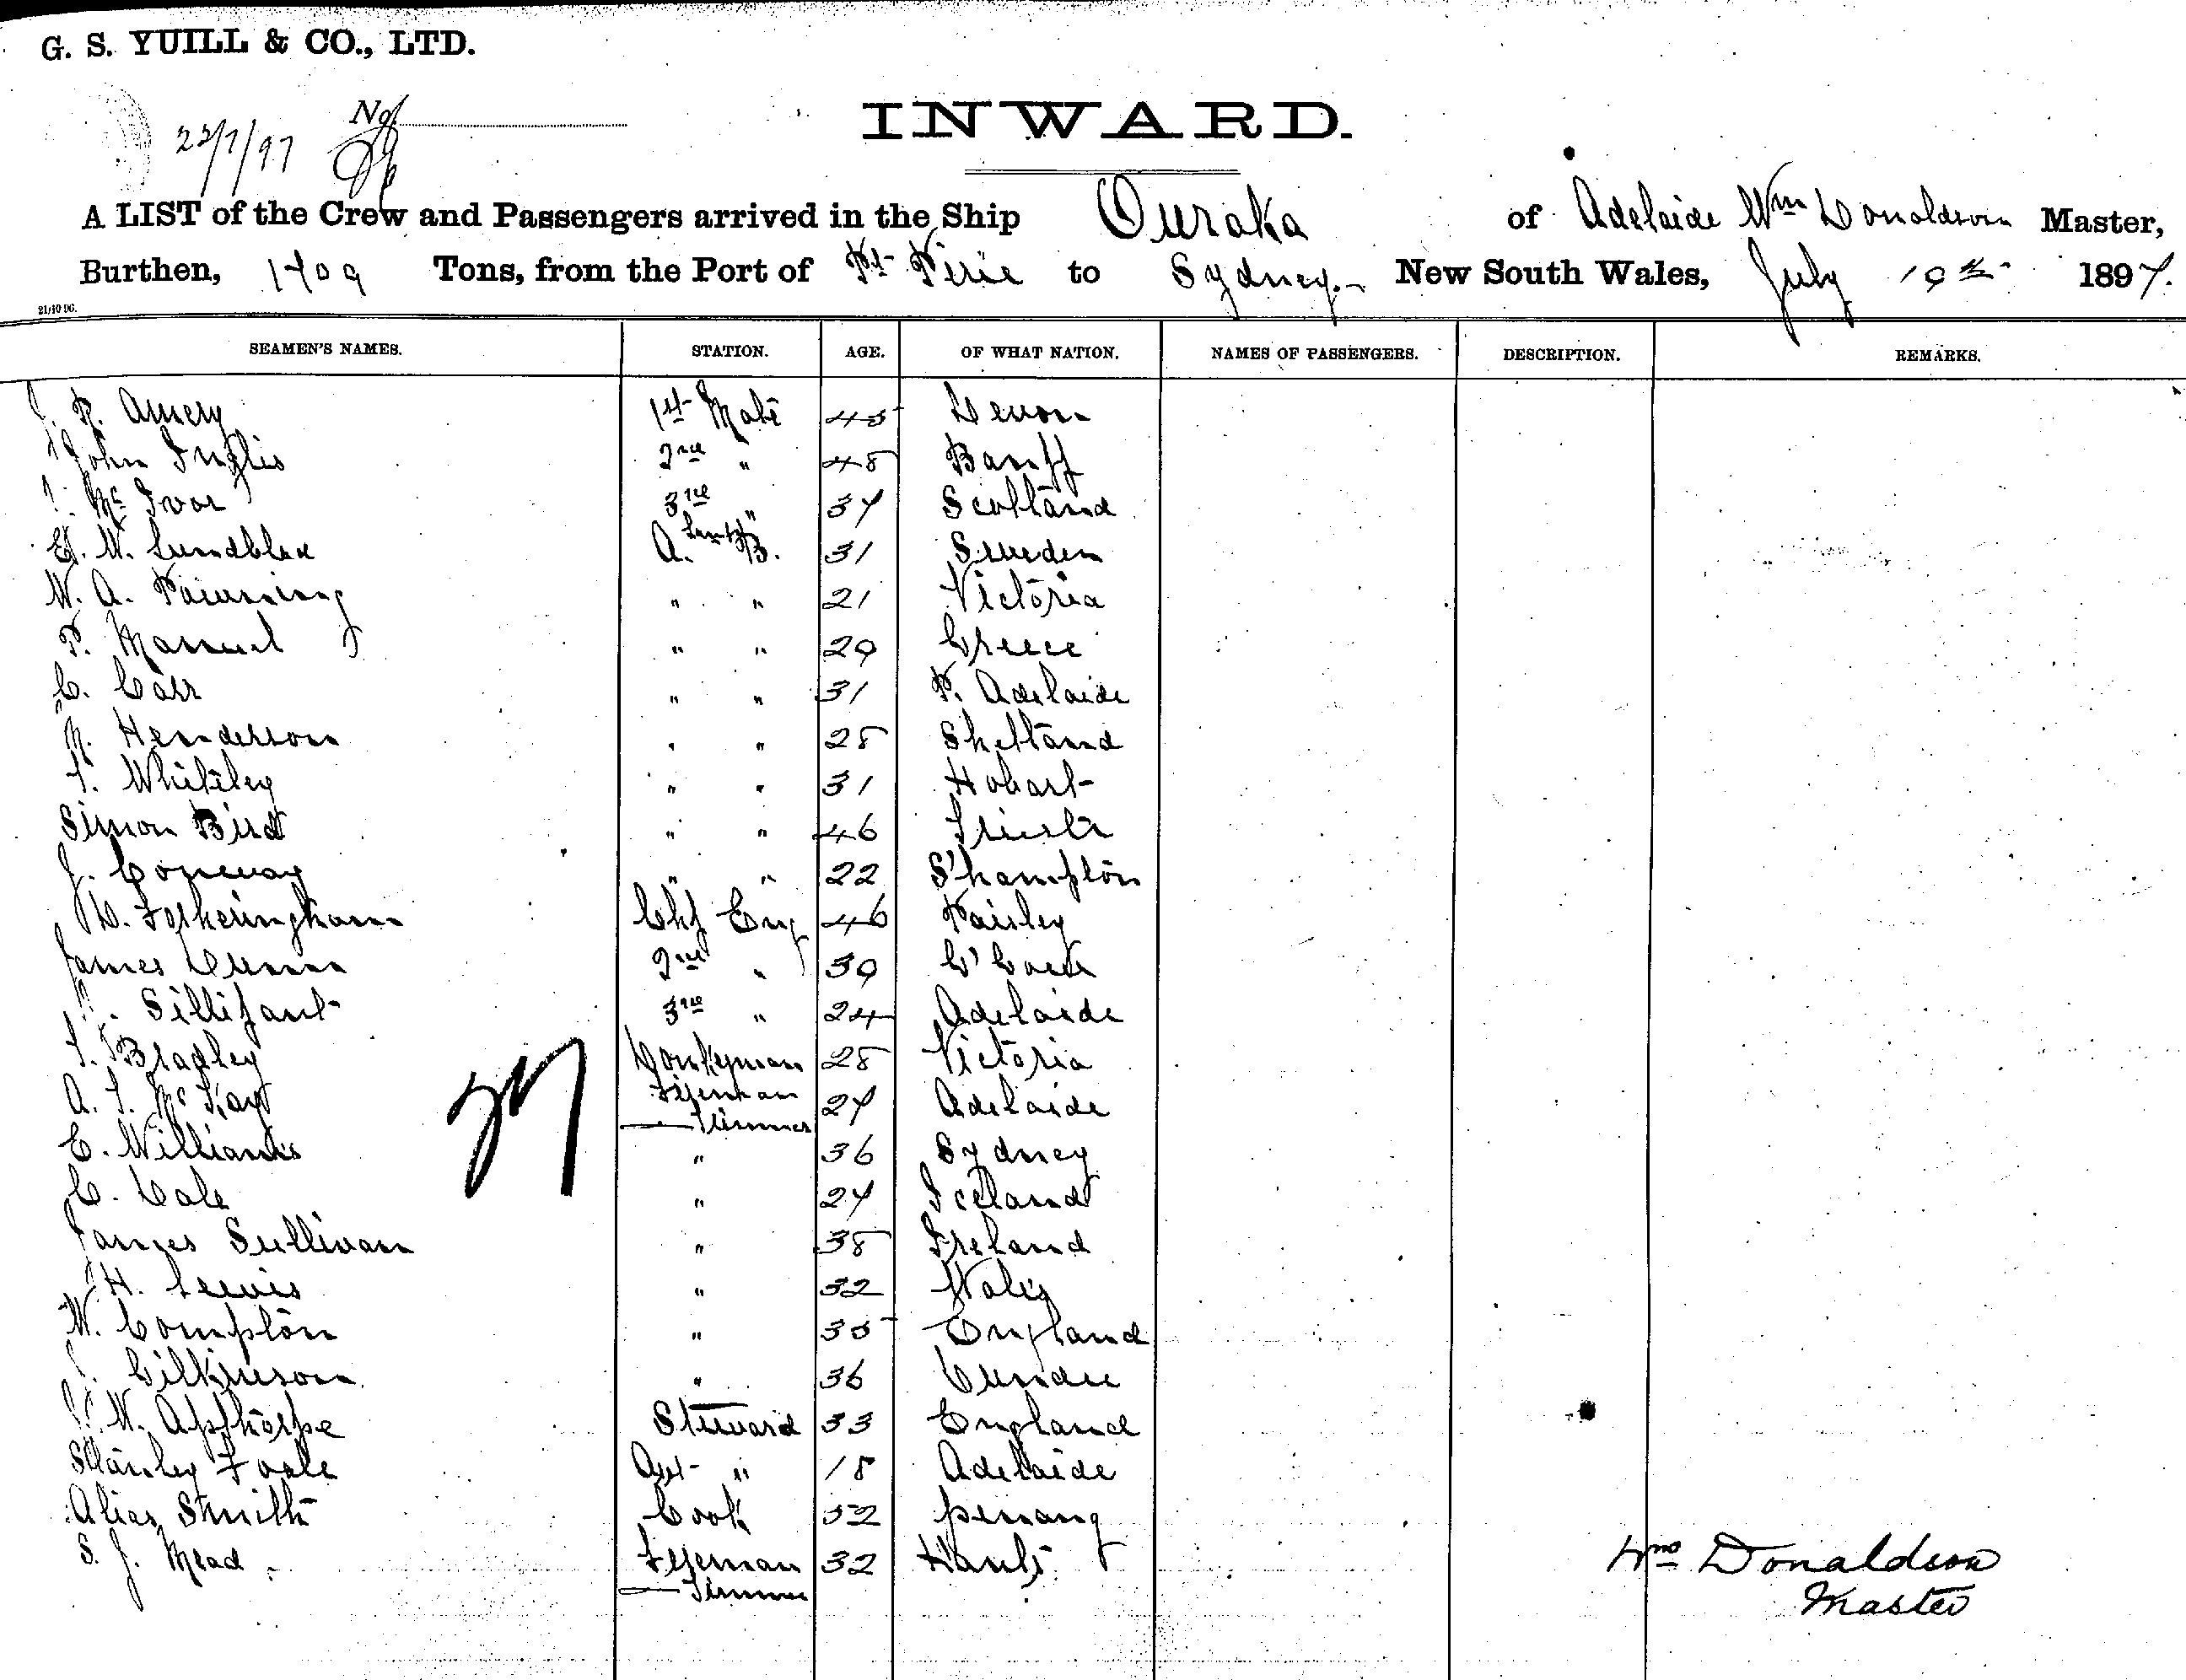 G. S. YUILL & CO., LTD.
No.
22/7/97
INWARD.
A LIST of the Crew and Passengers arrived in the Ship Ouraka of Adelaide Wm Donaldson Master,
Burthen, 1709 Tons, from the Port of Pt Pirie to Sydney. New South Wales, July 19th 1897.
21/10 96.
SEAMEN'S NAMES. STATION. AGE. OF WHAT NATION. NAMES OF PASSENGERS. DESCRIPTION. REMARKS.
J. R. Amery 1st Mate 45 Devon
John Inglis 2nd " 48 Banff
Mc Ivor 3rd " 37 Scotland
W. Lundblad A. B. 31 Sweden
W. A. " " 21 Victoria
P. Manuel " " 29 Greece
C. Carr " " 31 P. Adelaide
Henderson " " 28 Shetland
Whiteley " " 31 Hobart
Simon Bird " " 46 Trieste
J. Conway " " 22 S'hampton
D. Fotheringham Chf Eng 46 Paisley
James Dunn 2nd " 39
Sillifant 3rd " 24 Adelaide
Bradley Donkeyman 28 Victoria
A. Mc Kay Fireman Trimmer 27 Adelaide
E. Williams " 36 Sydney
C. Cale " 27 Iceland
James Sullivan " 38 Ireland
H. Lewis " 32 Wales
W. Compton " 35 England
Gilkinson " 36 Dundee
W. Apthorpe Steward 33 England
Stanley Foale Asst " 18 Adelaide
Alias Smith Cook 52 penang
S. J. Mead Fireman Trimmer 32 Hants
Wm Donaldson
Master